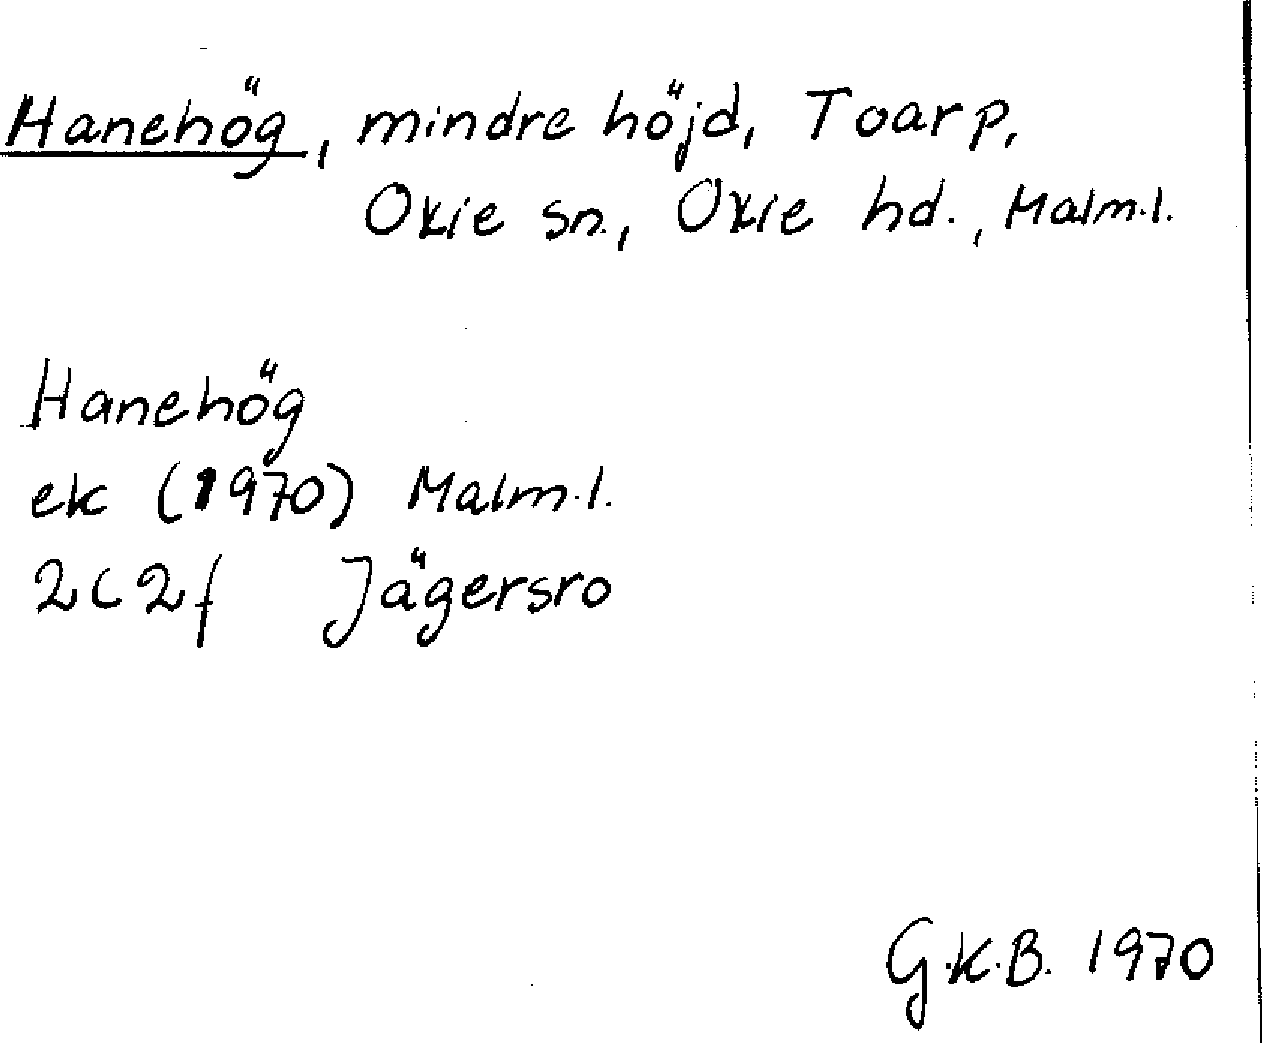 Hanehög, mindre höjd, Toarp,
Oxie sn., Oxie hd., Malm.l.
Hanehög
ek (1970) Malm.l.
2C2f Jägersro
G.K.B. 1970